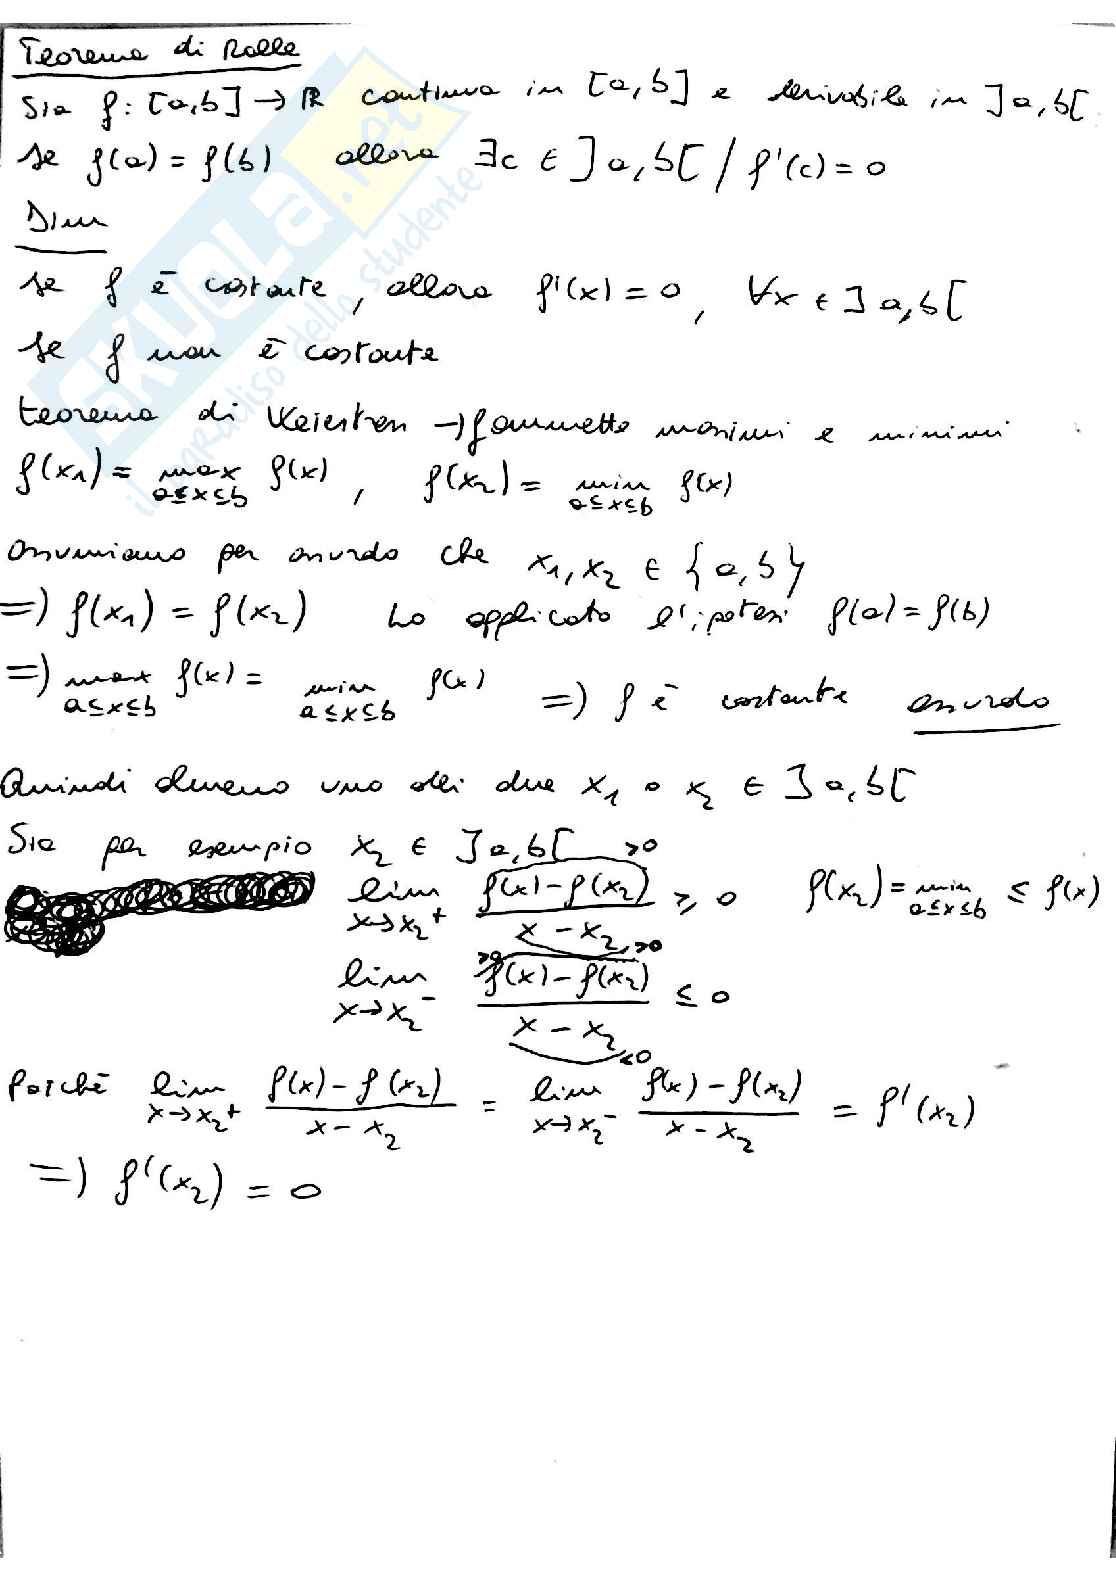 Teorema di Rolle
Sia f: [a,b] → ℝ continua in [a,b] e derivabile in ]a,b[
se f(a) = f(b) allora ∃c ∈ ]a,b[ / f'(c) = 0
Dim
se f è costante, allora f'(x) = 0, ∀x ∈ ]a,b[
se f non è costante
teorema di → f ammette massimi e minimi
f(x₁) = max a≤x≤b f(x), f(x₂) = min a≤x≤b f(x)
assumiamo per assurdo che x₁,x₂ ∈ {a,b}
=> f(x₁) = f(x₂) ho applicato l'ipotesi f(a) = f(b)
=> max a≤x≤b f(x) = min a≤x≤b f(x) => f è costante assurdo
Quindi almeno uno dei due x₁ o x₂ ∈ ]a,b[
Sia per esempio x₂ ∈ ]a,b[
lim x→x₂⁺ (f(x) - f(x₂)) / (x - x₂) ≥ 0 >0 >0 f(x₂) = min a≤x≤b ≤ f(x)
lim x→x₂⁻ (f(x) - f(x₂)) / (x - x₂) ≤ 0 >0 <0
Poichè lim x→x₂⁺ (f(x) - f(x₂)) / (x - x₂) = lim x→x₂⁻ (f(x) - f(x₂)) / (x - x₂) = f'(x₂)
=> f'(x₂) = 0
SKUOLA.net
il paradiso dello studente